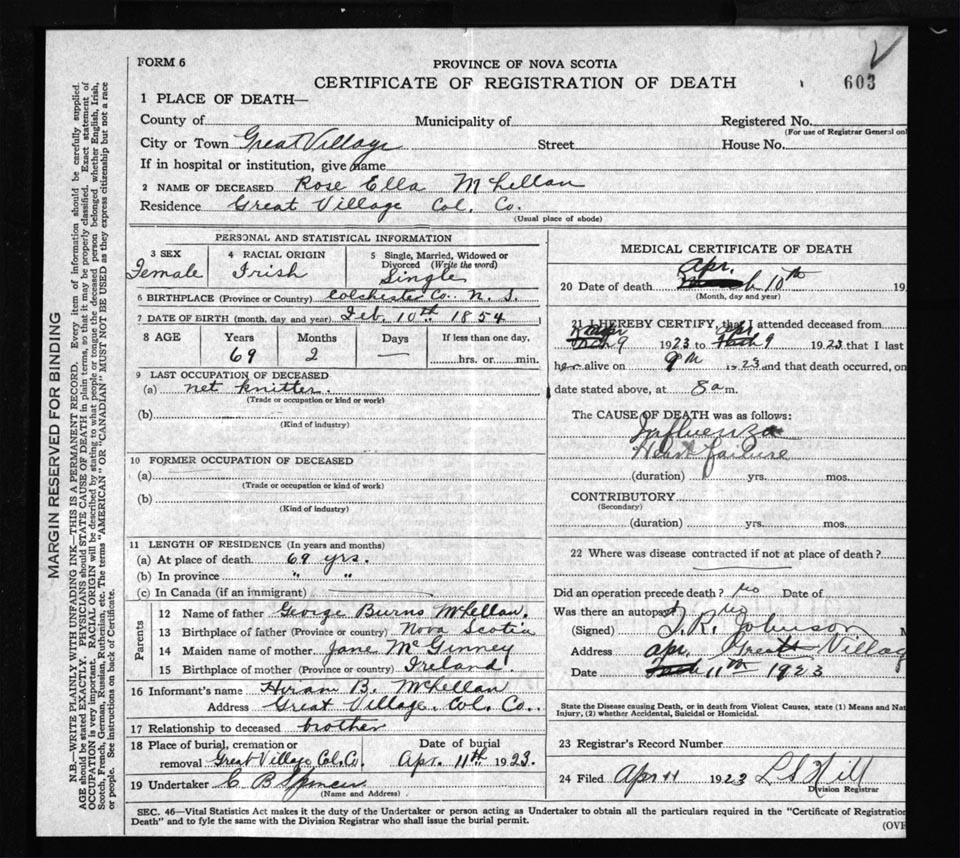 FORM 6
PROVINCE OF NOVA SCOTIA
CERTIFICATE OF REGISTRATION OF DEATH
603
1 PLACE OF DEATH—
County of
Municipality of
Registered No.
(For use of Registrar General onl
City or Town Great Village
Street
House No.
If in hospital or institution, give name
2 NAME OF DECEASED Rose Ella McLellan
Residence Great Village Col. Co.
(Usual place of abode)
PERSONAL AND STATISTICAL INFORMATION
3 SEX
Female
4 RACIAL ORIGIN
Irish
5 Single, Married, Widowed or
Divorced (Write the word)
Single
6 BIRTHPLACE (Province or Country) Colchester Co. N. S.
7 DATE OF BIRTH (month, day and year) Feb. 10th 1854
8 AGE
Years
69
Months
2
Days
—
If less than one day,
hrs. or min.
9 LAST OCCUPATION OF DECEASED
(a) net knitter.
(Trade or occupation or kind or work)
(b)
(Kind of industry)
10 FORMER OCCUPATION OF DECEASED
(a)
(Trade or occupation or kind of work)
(b)
(Kind of industry)
11 LENGTH OF RESIDENCE (In years and months)
(a) At place of death 69 yrs.
(b) In province " "
(c) In Canada (if an immigrant)
Parents
12 Name of father George Burns McLellan.
13 Birthplace of father (Province or country) Nova Scotia
14 Maiden name of mother Jane McGinney
15 Birthplace of mother (Province or country) Ireland.
16 Informant's name Hiram B. McLellan
Address Great Village. Col. Co.
17 Relationship to deceased brother
18 Place of burial, cremation or
removal Great Village Col. Co.
Date of burial
Apr. 11th 1923.
19 Undertaker C B Spencer
(Name and Address)
MEDICAL CERTIFICATE OF DEATH
20 Date of death Apr. 10th 19
(Month, day and year)
21 I HEREBY CERTIFY, that I attended deceased from
apr 9 1923 to apr 9 1923 that I last
her alive on 9th 1923 and that death occurred, on
date stated above, at 8 a m.
The CAUSE OF DEATH was as follows:
Influenza
Heart failure
(duration) yrs. mos.
CONTRIBUTORY
(Secondary)
(duration) yrs. mos.
22 Where was disease contracted if not at place of death?
Did an operation precede death? No Date of
Was there an autopsy? No
(Signed) T. R. Johnson M
Address Great Villag
Date apr. 11th 1923
State the Disease causing Death, or in death from Violent Causes, state (1) Means and Nat
Injury, (2) whether Accidental, Suicidal or Homicidal.
23 Registrar's Record Number
24 Filed Apr 11 1923 L S Hill
Division Registrar
SEC. 46—Vital Statistics Act makes it the duty of the Undertaker or person acting as Undertaker to obtain all the particulars required in the "Certificate of Registration
Death" and to fyle the same with the Division Registrar who shall issue the burial permit.
(OVE
MARGIN RESERVED FOR BINDING
N.B.—WRITE PLAINLY WITH UNFADING INK—THIS IS A PERMANENT RECORD. Every item of information should be carefully supplied.
AGE should be stated EXACTLY. PHYSICIANS should STATE CAUSE OF DEATH in plain terms, so that it may be properly classified. Exact statement of
OCCUPATION is very important. RACIAL ORIGIN will be described by stating to what people or tongue the deceased person belonged whether English, Irish,
Scotch, French, German, Russian, Ruthenian, etc. The terms "AMERICAN" OR "CANADIAN" MUST NOT BE USED as they express citizenship but not a race
or people. See instructions on back of Certificate.